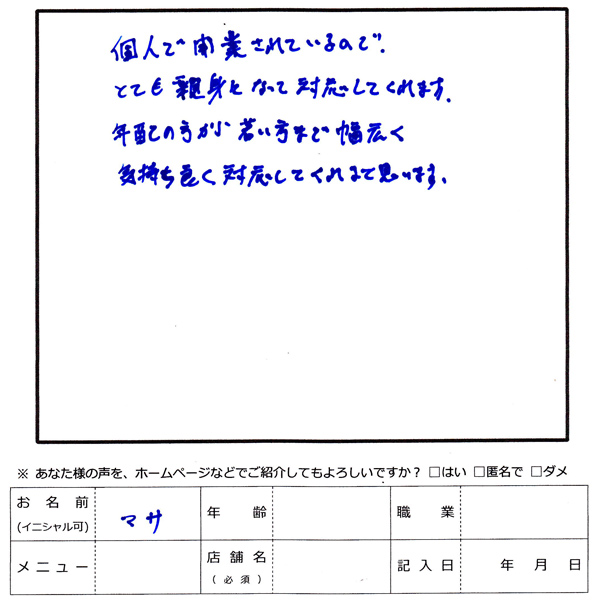 個人で開業されているので、
とても親身になって対応してくれます。
年配の方から若い方まで幅広く
気持ち良く対応してくれると思います。
※ あなた様の声を、ホームページなどでご紹介してもよろしいですか？ □はい □匿名で □ダメ
お名前 (イニシャル可) マサ 年齢 職業
メニュー 店舗名 (必須) 記入日 年 月 日